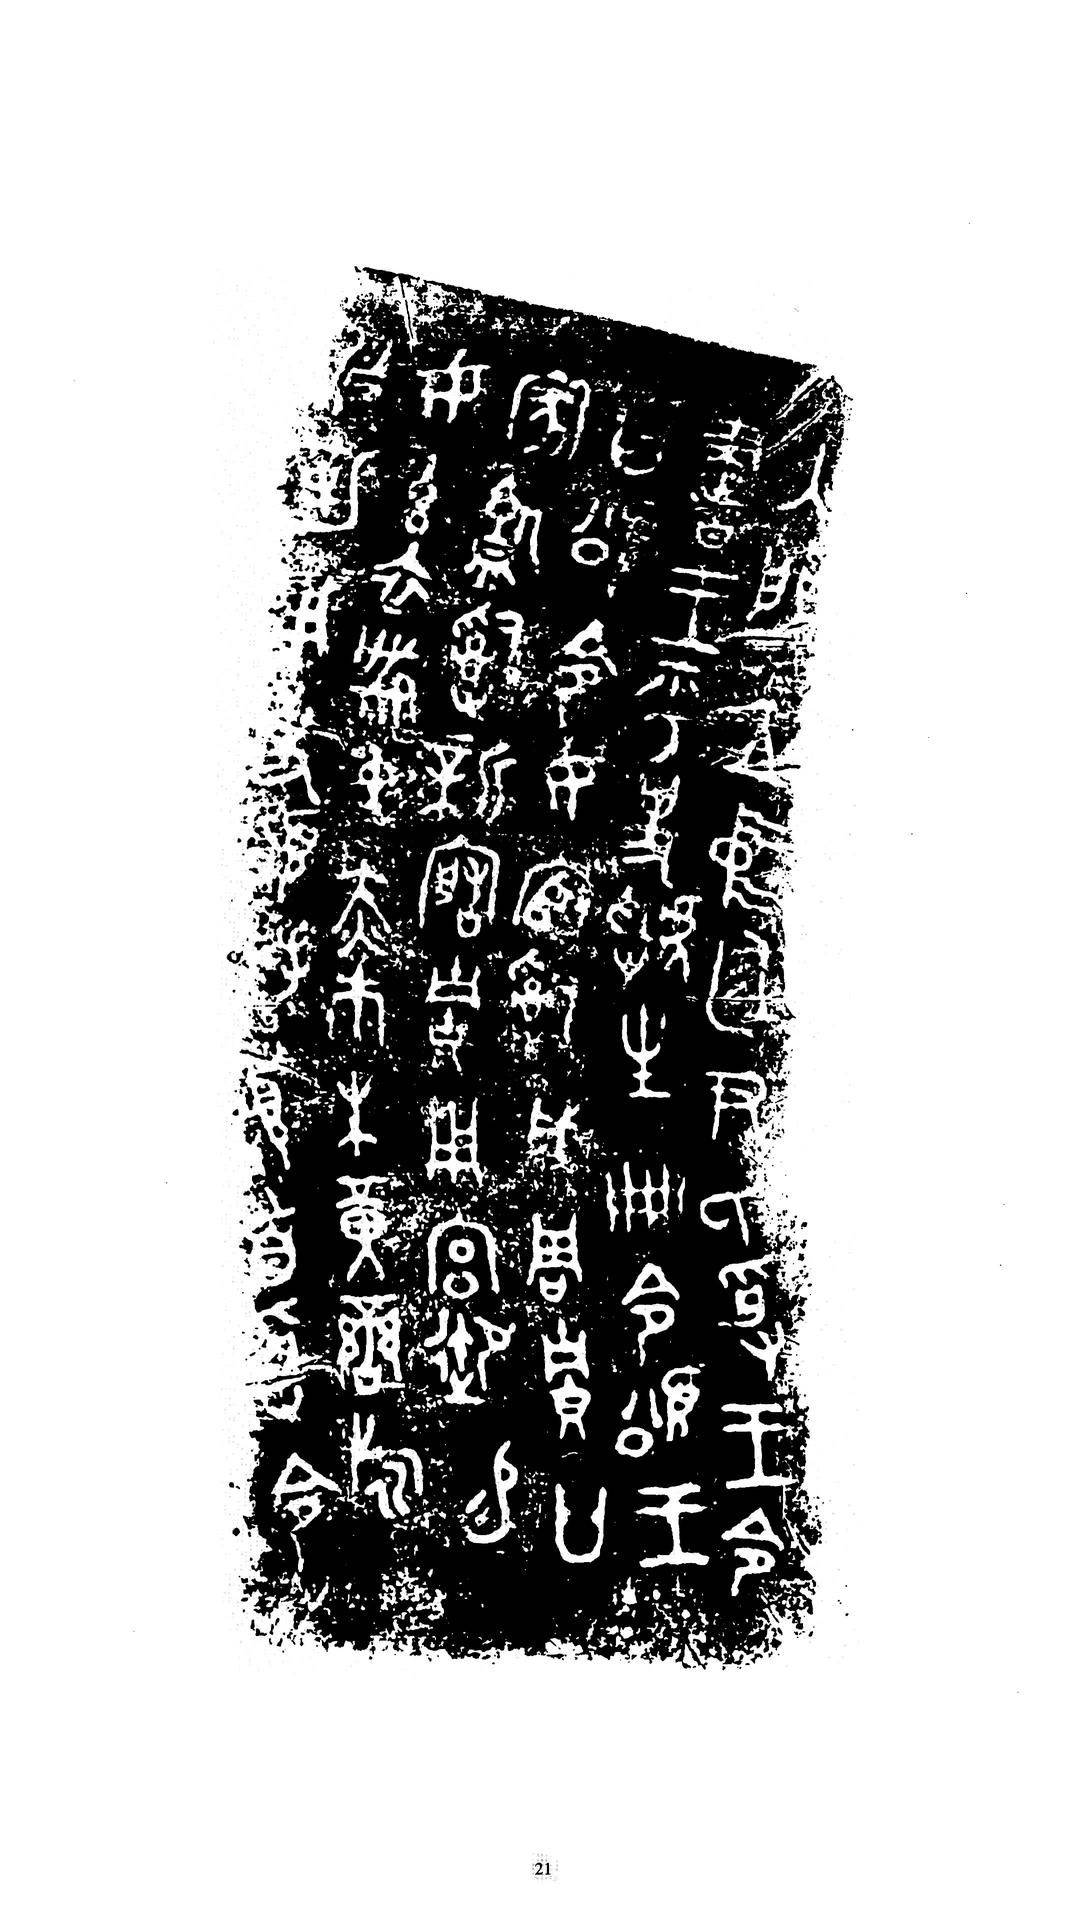 入門立中廷尹氏受王令
書王乎史虢生冊令頌王
曰頌令女官𤔲成周貯廿
家監𤔲新造貯用宮御易
女玄衣黹屯赤巿朱黃鑾旂
攸勒用事頌拜首受令
21